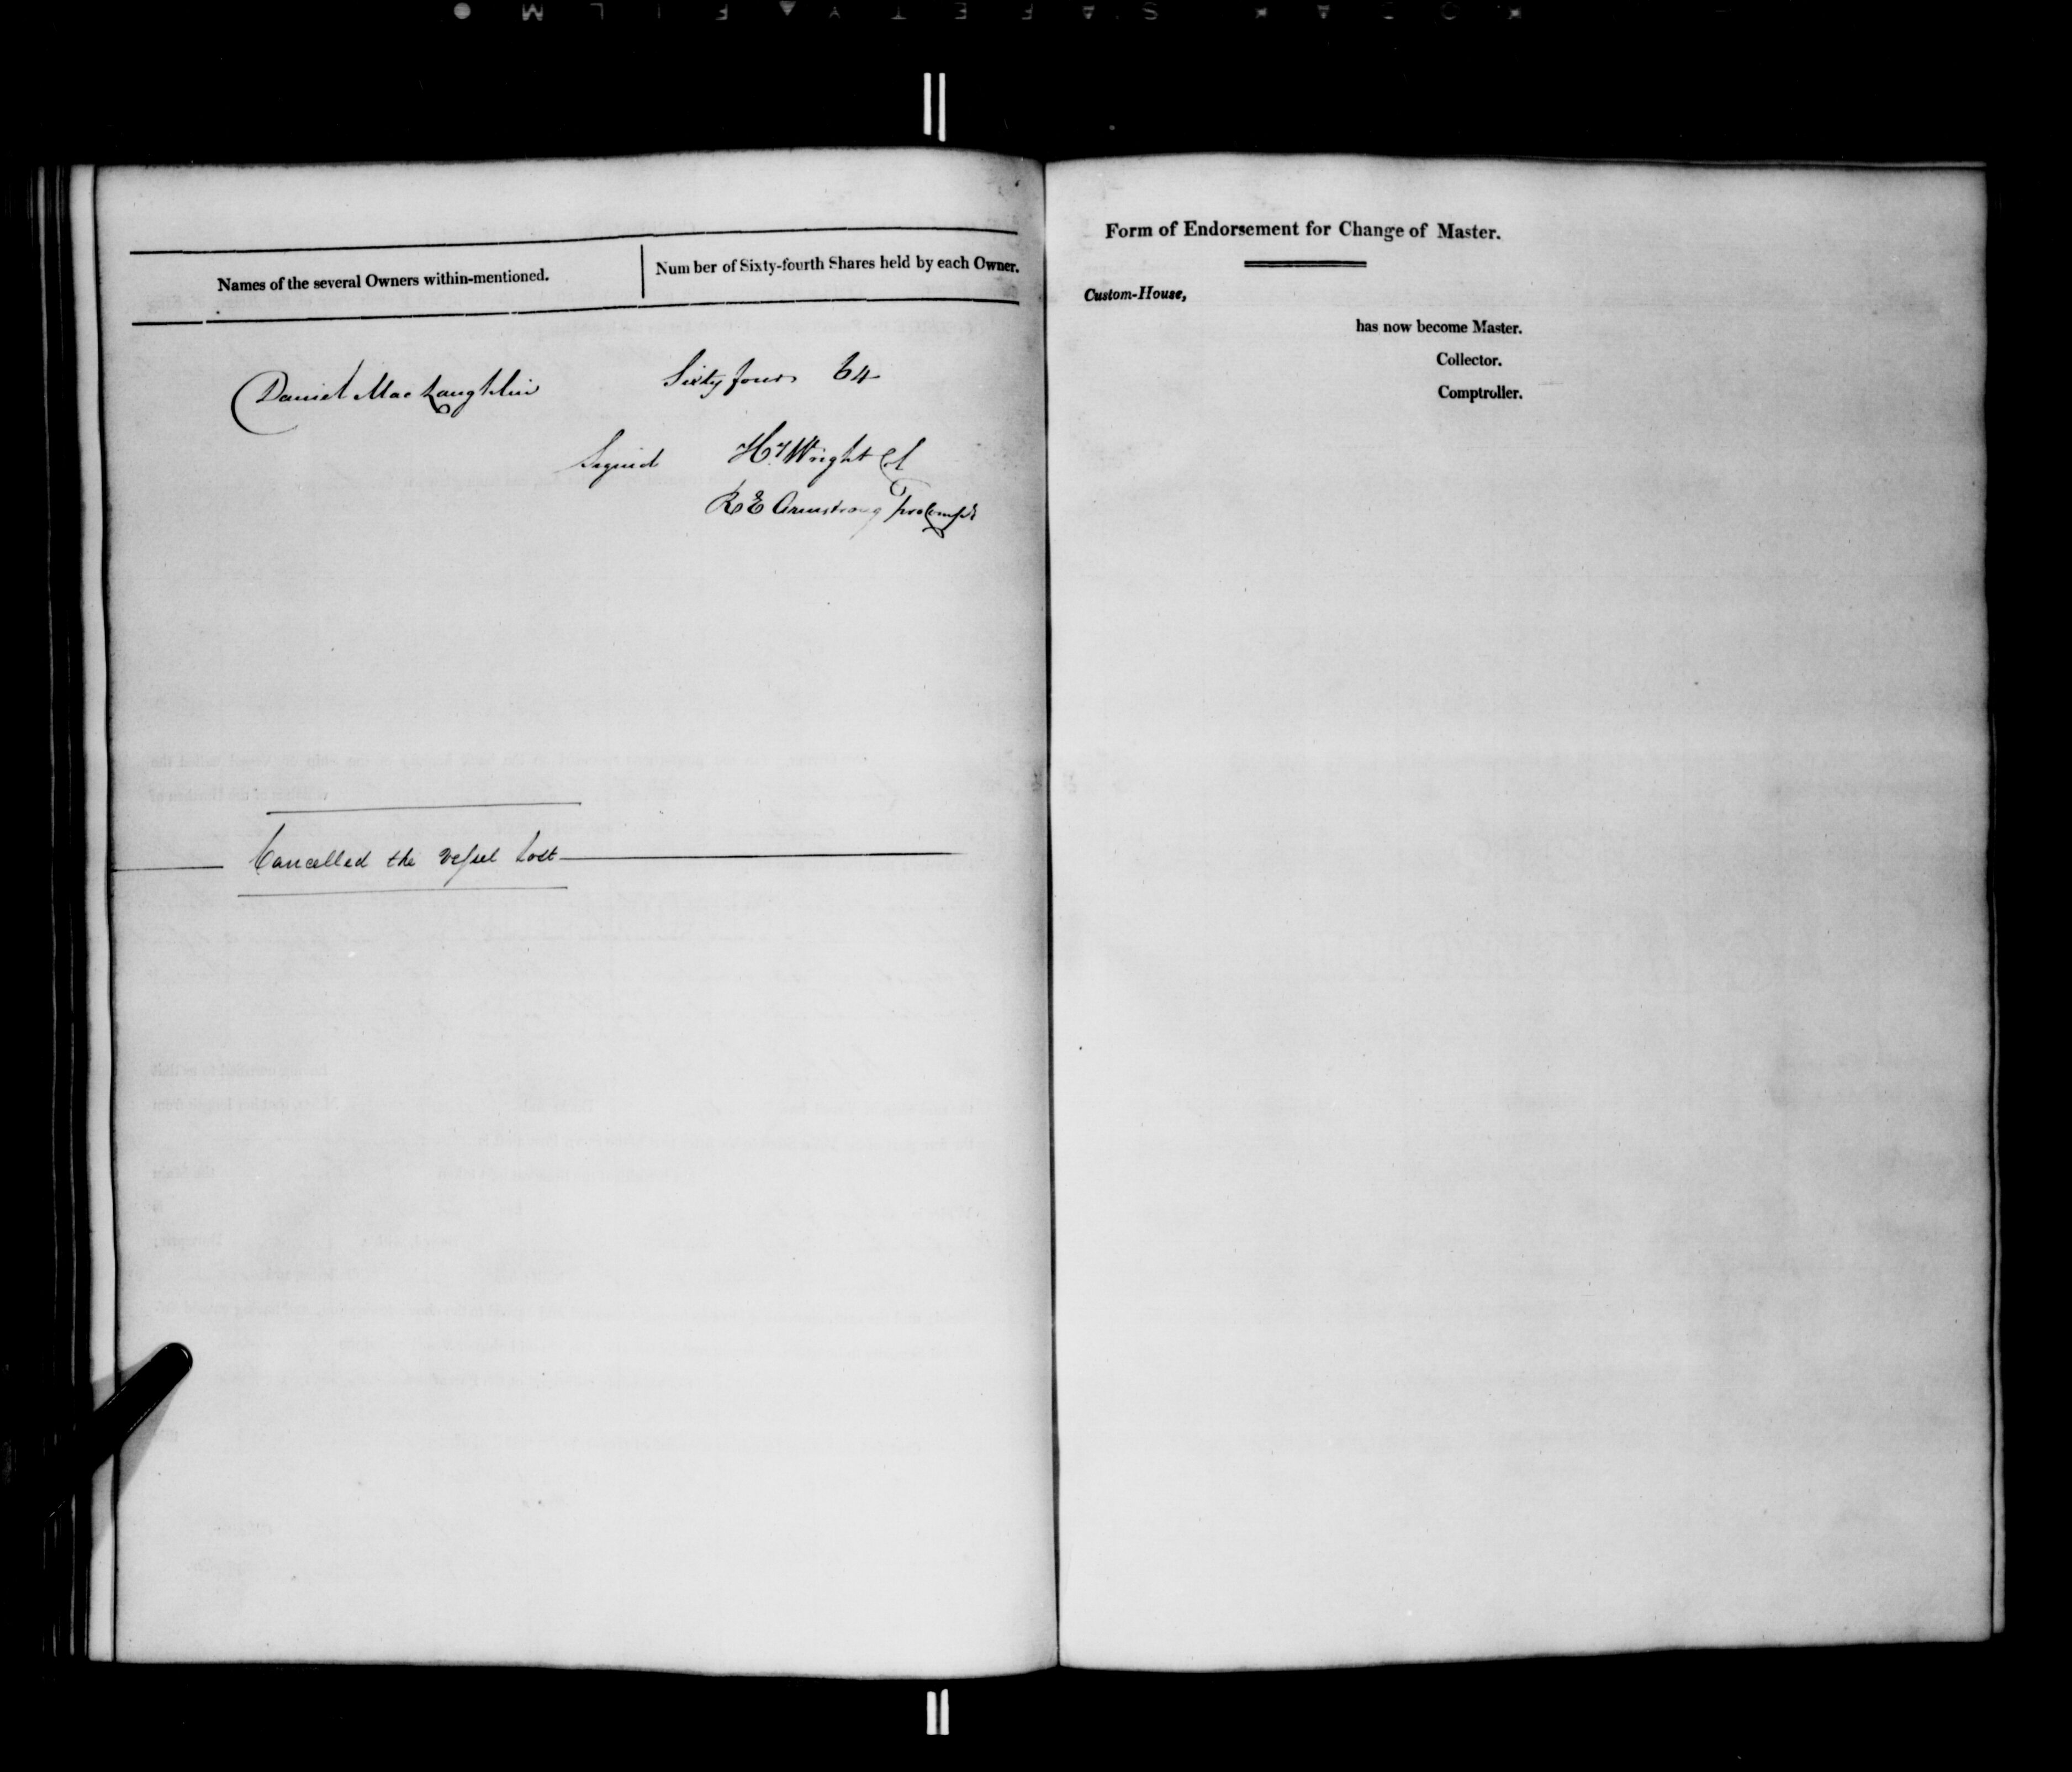 Names of the several Owners within-mentioned.
Number of Sixty-fourth Shares held by each Owner.
Daniel MacLaughlin Sixty four 64
Signed Hy Wright Col
R E Armstrong pro Compt
Cancelled the vessel Lost
Form of Endorsement for Change of Master.
Custom-House,
has now become Master.
Collector.
Comptroller.